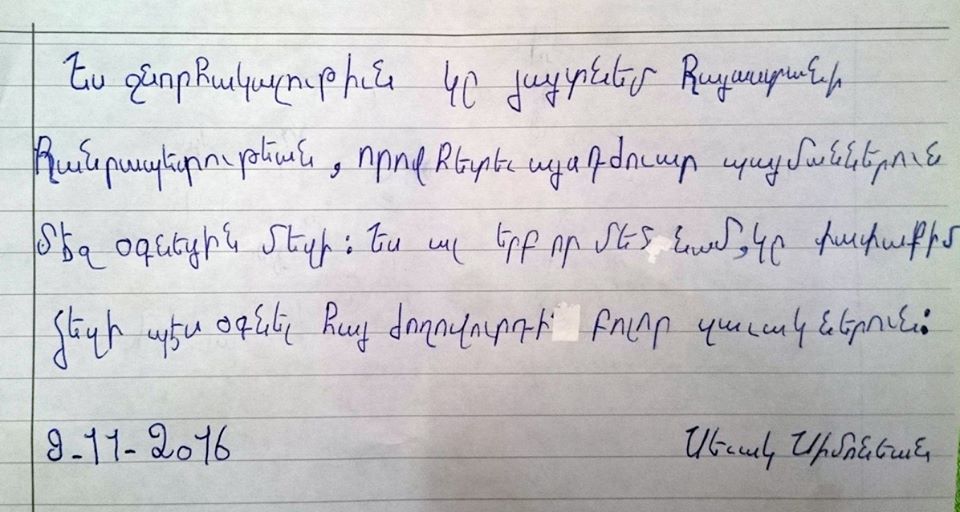 Ես շնորհակալութիւն կը յայտնեմ Հայաստանի
Հանրապետութեան, որովհետեւ այս դժուար պայմաններուն
մէջ օգնեցին մեզի: Ես ալ երբ որ մեծ նամ, կը փափաքիմ
ձեզի պէս օգնել հայ ժողովուրդի բոլոր զաւակներուն:
9-11-2016 Սեւակ Սիմոնեան